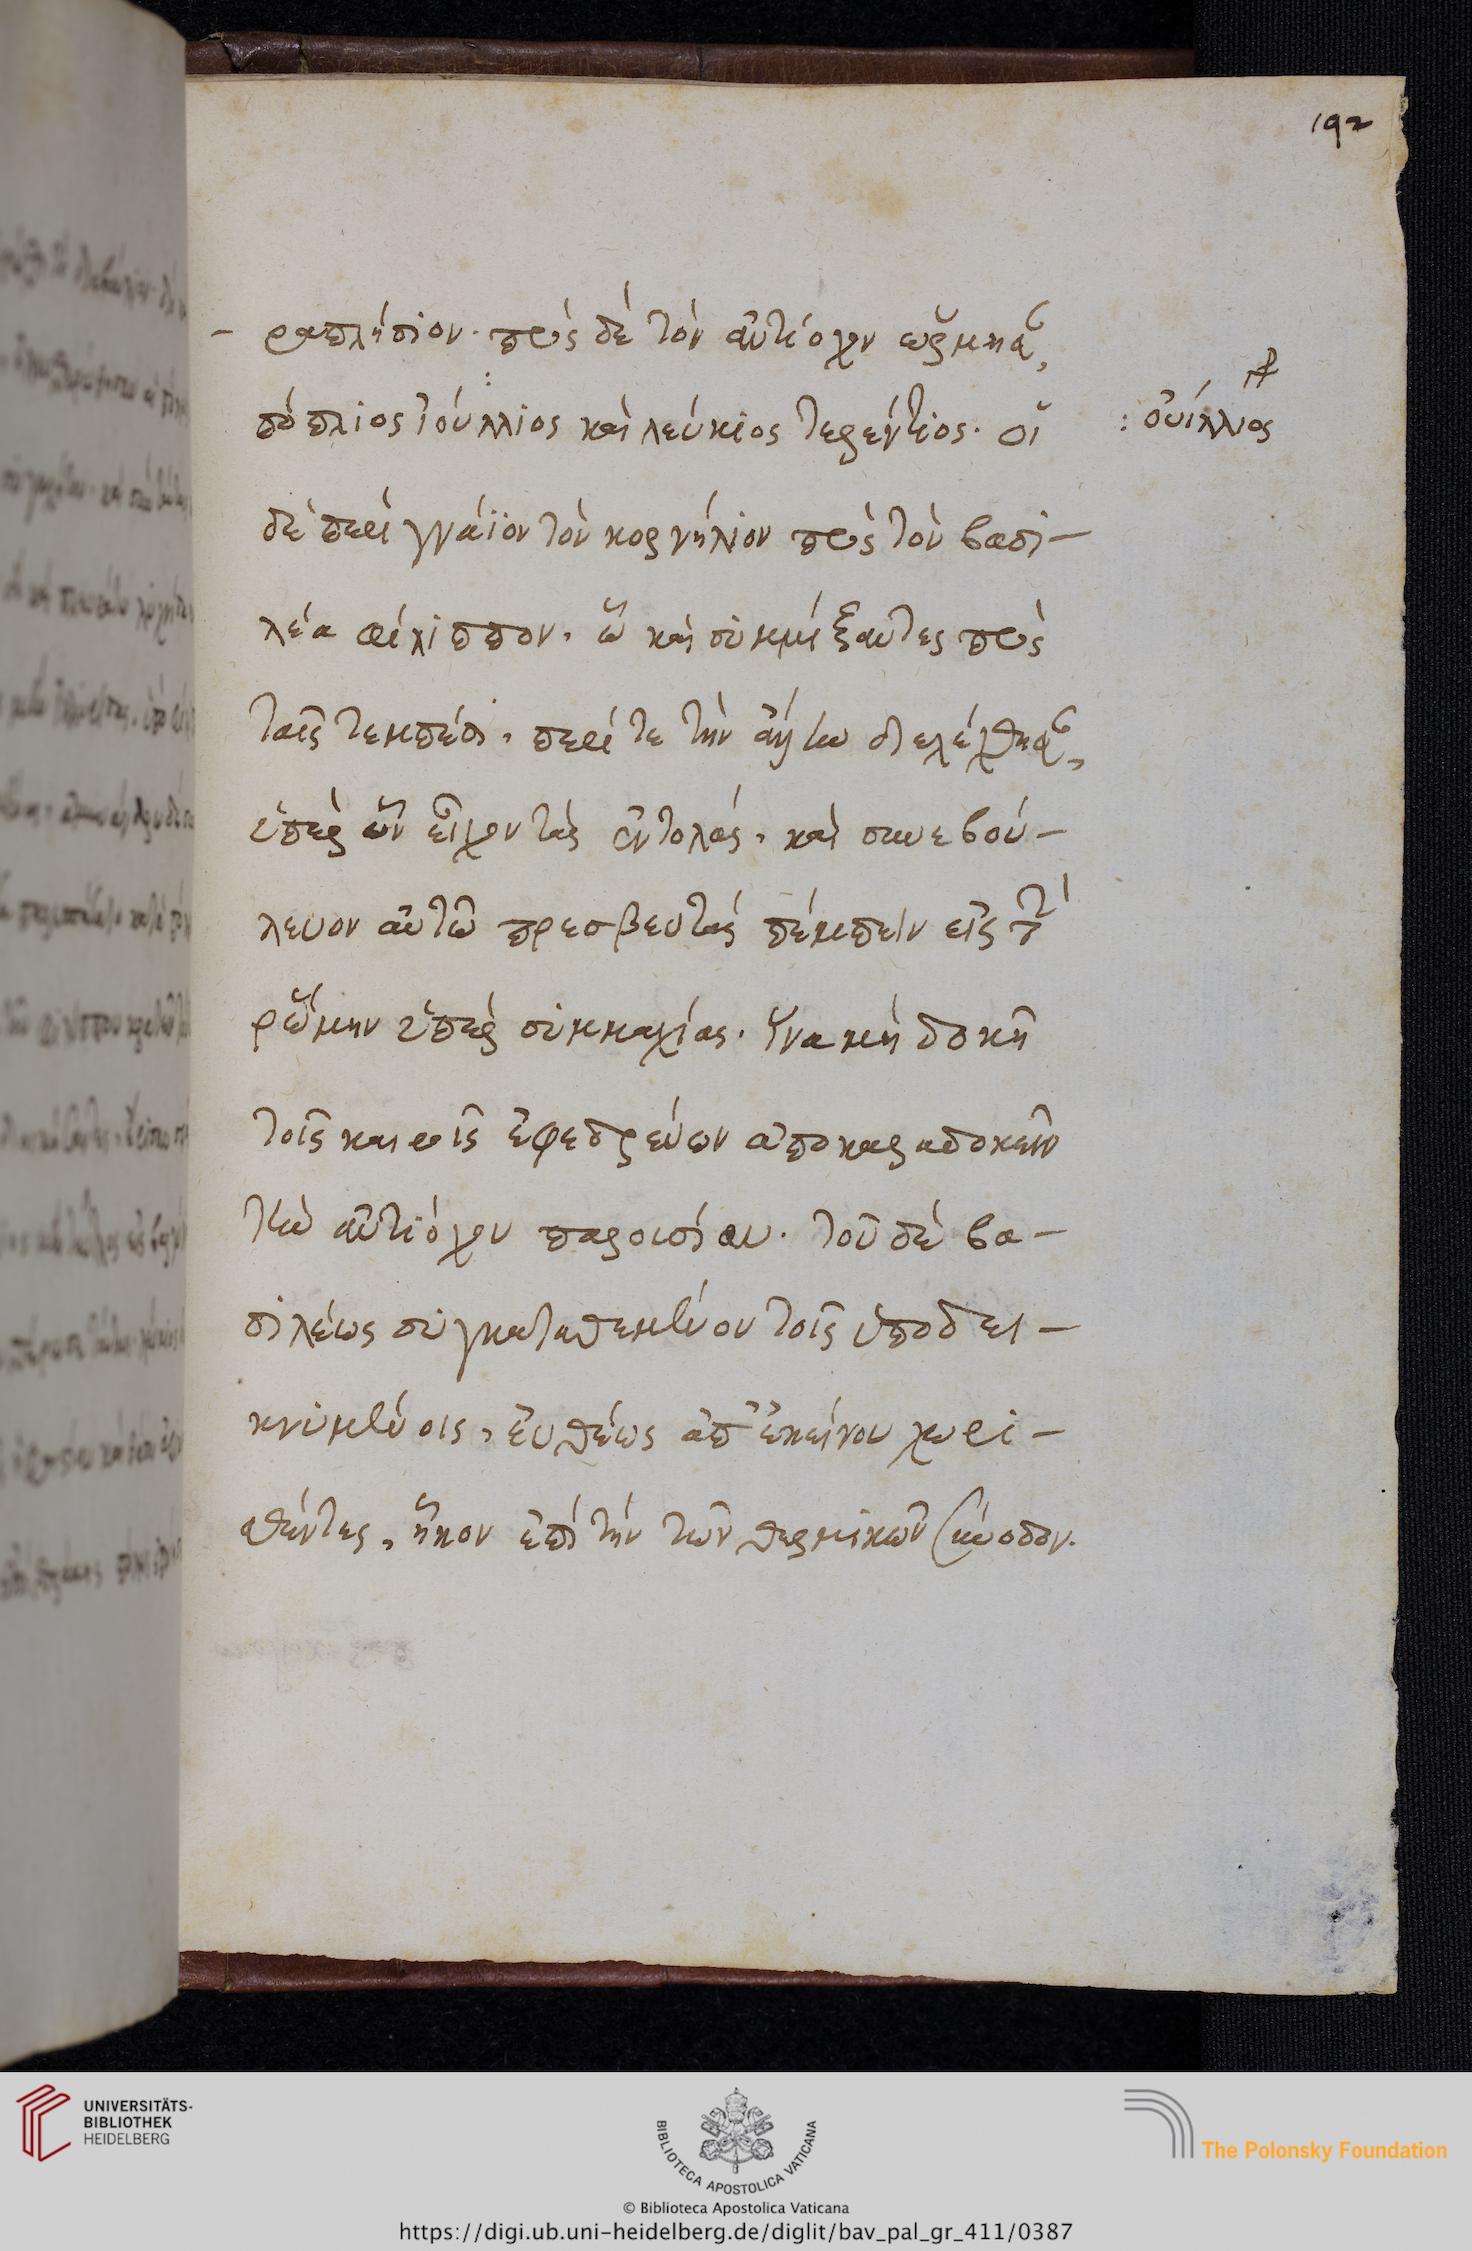 192
– ραπλήσιον. πρὸς δὲ τὸν ἀντίοχον ὥρμησαν,
πόπλιος ἰούλλιος καὶ λεύκιος τερέντιος. οἱ
: οὐίλλιος
δὲ περὶ γνάϊον τὸν κορνήλιον πρὸς τὸν βασι–
λέα φίλιππον. ᾧ καὶ συμμίξαντες πρὸς
τοῖς τέμπεσι, περί τε τῶν ἄλλων διελέχθησαν,
ὑπὲρ ὧν εἶχον τὰς ἐντολάς, καὶ συνεβού–
λευον αὐτῶ πρεσβευτὰς πέμπειν εἰς τὴν
ῥώμην ὑπὲρ συμμαχίας. ἵνα μὴ δοκῆ
τοῖς καιροῖς ἐφεδρεύων ἀποκαραδοκεῖν
τὴν ἀντιόχου παρουσίαν. τοῦ δὲ βα–
σιλέως συγκαταθεμένου τοῖς ὑποδει–
κνυμένοις, εὐθέως ἀπ' ἐκείνου χωρι–
σθέντες, ἧκον ἐπὶ τὴν τῶν θερμικῶν σύνοδον.
UNIVERSITÄTS-
BIBLIOTHEK
HEIDELBERG
BIBLIOTECA APOSTOLICA VATICANA
The Polonsky Foundation
© Biblioteca Apostolica Vaticana
https://digi.ub.uni-heidelberg.de/diglit/bav_pal_gr_411/0387